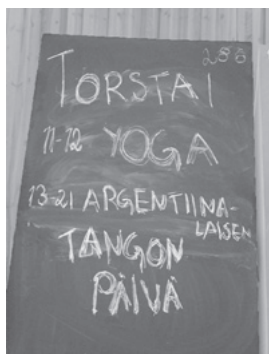 28.8
TORSTAI
11-12 YOGA
13-21 ARGENTIINA-
LAISEN
TANGON
PÄIVÄ